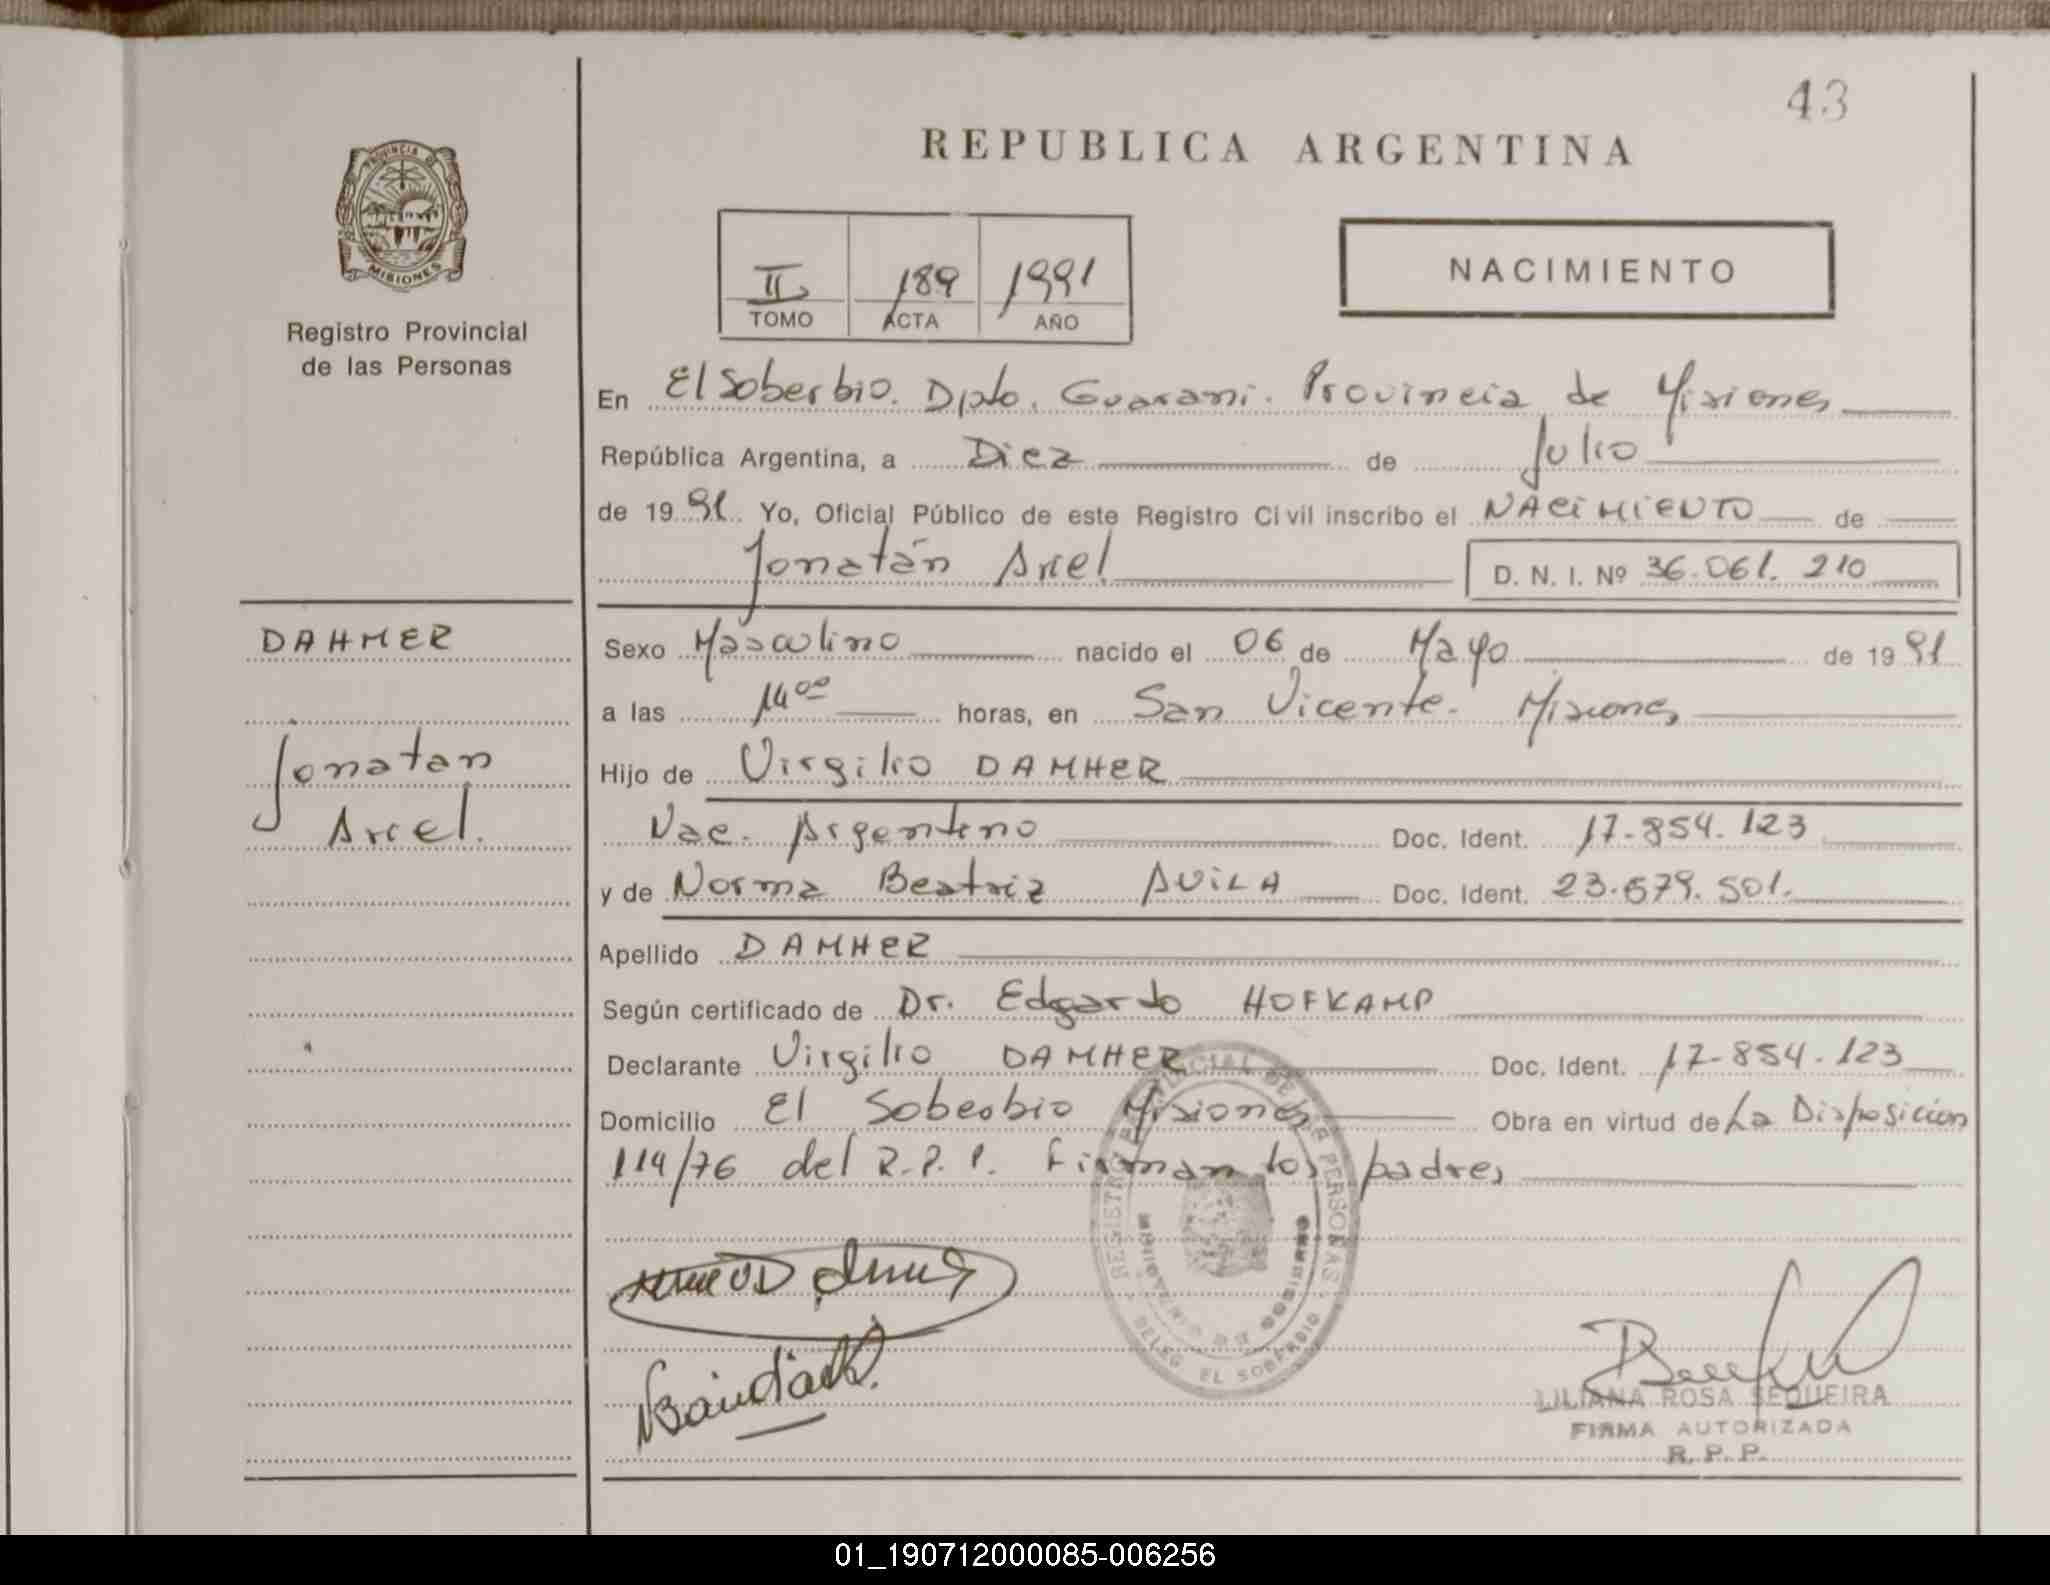 43
REPUBLICA ARGENTINA
PROVINCIA DE
MISIONES
Registro Provincial
de las Personas
II 189 1991
TOMO ACTA AÑO
NACIMIENTO
En El Soberbio. Dpto. Guarani. Provincia de Misiones
República Argentina, a Diez de Julio
de 1991 Yo, Oficial Público de este Registro Civil inscribo el NACIMIENTO de
Jonatán Ariel D. N. I. Nº 36.061.210
DAHMER
Jonatan
Ariel.
Sexo Masculino nacido el 06 de Mayo de 1991
a las 14⁰⁰ horas, en San Vicente. Misiones
Hijo de Virgilio DAHMER
Nac. Argentino Doc. Ident. 17.854.123
y de Norma Beatriz AVILA Doc. Ident. 23.579.501.
Apellido DAHMER
Según certificado de Dr. Edgardo HOFKAMP
Declarante Virgilio DAHMER Doc. Ident. 17.854.123
Domicilio El Soberbio Misiones Obra en virtud de La Disposición
114/76 del R.P.P. Firman los padres
REGISTRO PROVINCIAL DE LAS PERSONAS
MINISTERIO DE GOBIERNO
DELEG. EL SOBERBIO
LILIANA ROSA SEQUEIRA
FIRMA AUTORIZADA
R. P. P.
01_190712000085-006256